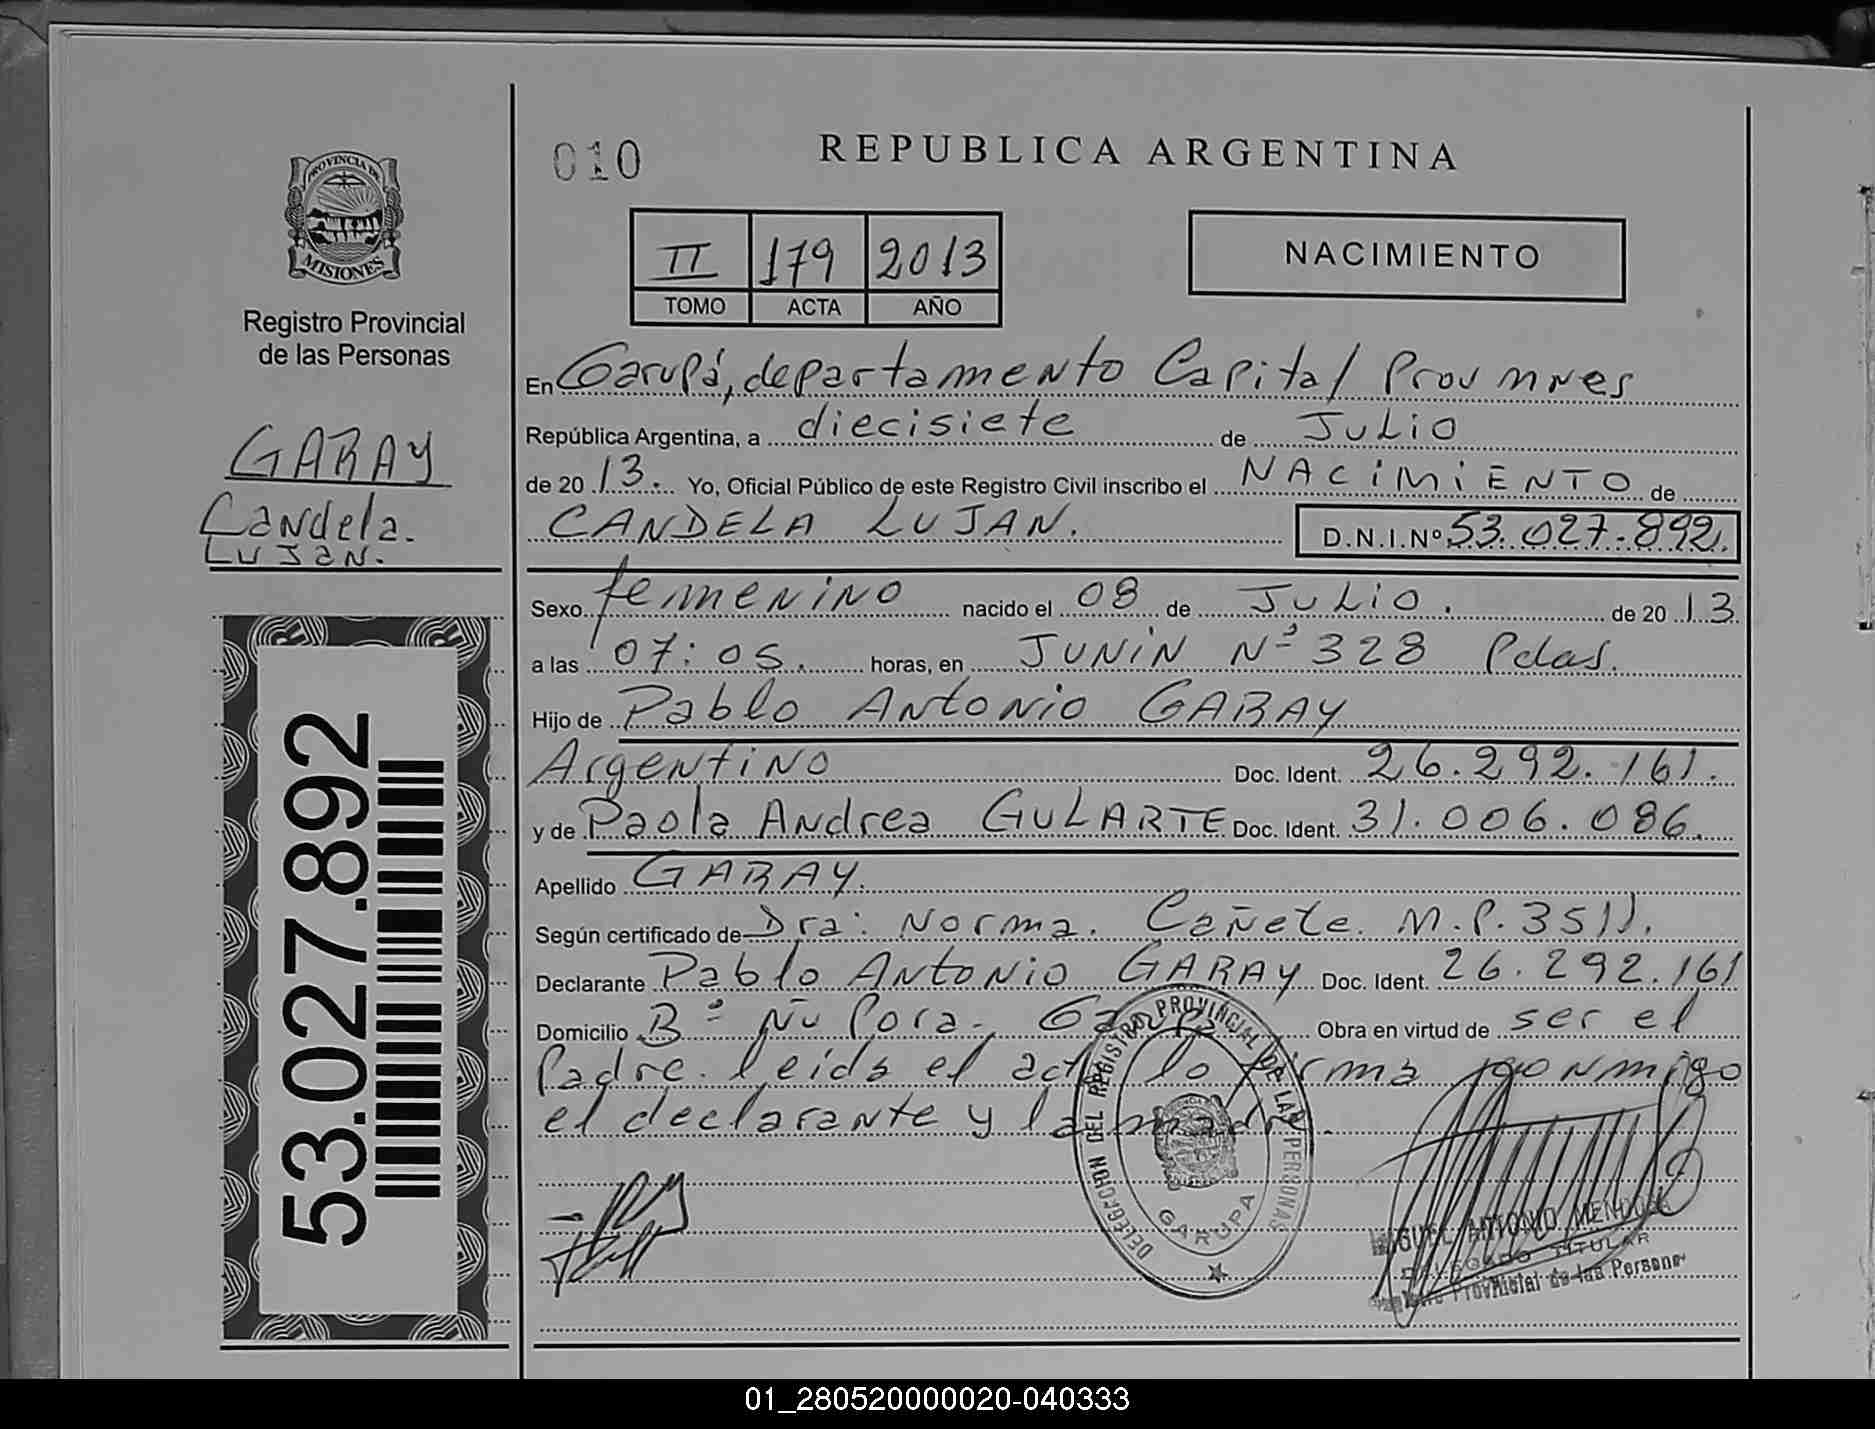 010
REPUBLICA ARGENTINA
PROVINCIA DE
MISIONES
Registro Provincial
de las Personas
GARAY
Candela.
LUJAN.
53.027.892
II 179 2013
TOMO ACTA AÑO
NACIMIENTO
En Garupá, departamento Capital Prov mnes
República Argentina, a diecisiete de JULIO
de 20 13. Yo, Oficial Público de este Registro Civil inscribo el NACIMIENTO de
CANDELA LUJAN. D.N.I.Nº 53.027.892.
Sexo femenino nacido el 08 de JULIO. de 20 13
a las 07:05. horas, en JUNIN Nº 328 Pdas.
Hijo de Pablo Antonio GARAY
Argentino Doc. Ident. 26.292.161.
y de Paola Andrea GULARTE Doc. Ident. 31.006.086.
Apellido GARAY.
Según certificado de Dra: Norma. Cañete. M.P.3511.
Declarante Pablo Antonio GARAY Doc. Ident. 26.292.161
Domicilio Bº Ñu Pora., Garupa Obra en virtud de ser el
Padre. leida el acta lo firma conmigo
el declarante y la madre.
DELEGACION DEL REGISTRO PROVINCIAL DE LAS PERSONAS
GARUPA
MIGUEL ANTONIO MENDOZA
DELEGADO TITULAR
Provincial de las Personas
01_280520000020-040333